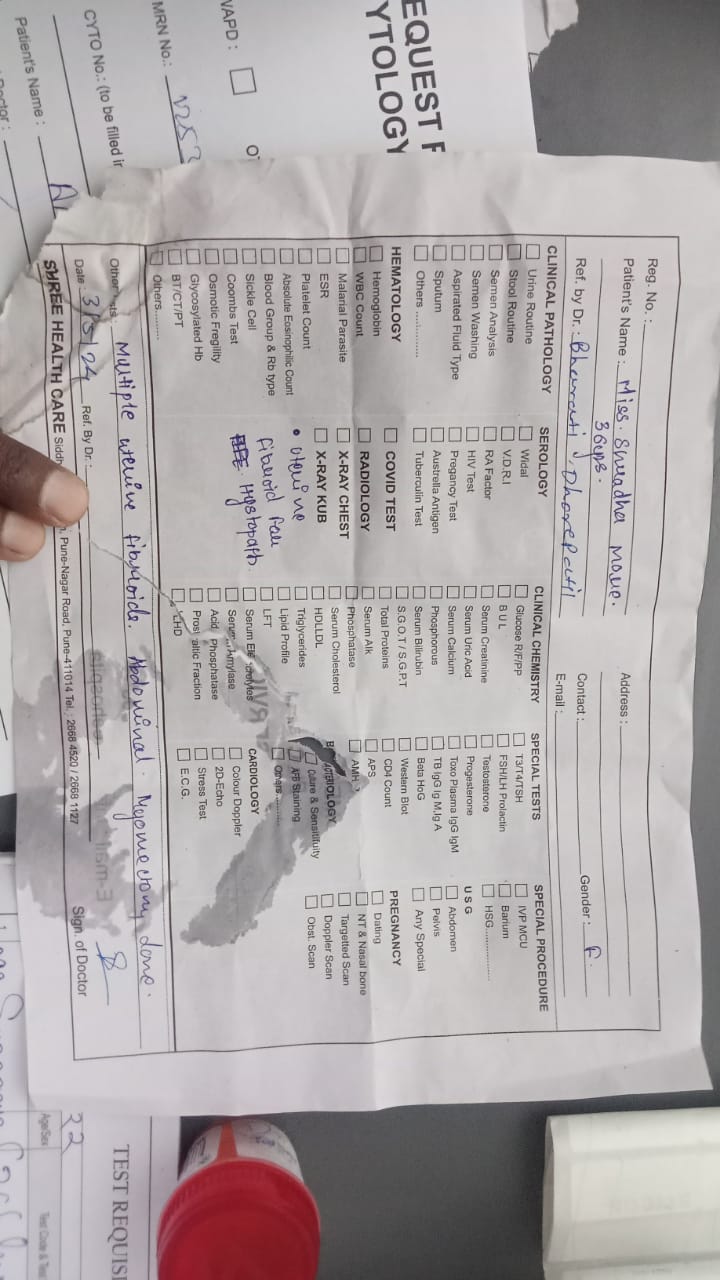 Reg. No. :
Patient's Name :
Address :
Ref. by Dr. :
Contact :
Gender : F.
E-mail :
CLINICAL PATHOLOGY
Urine Routine
Stool Routine
Semen Analysis
Semen Washing
Aspirated Fluid Type
Sputum
Others
HEMATOLOGY
Hemoglobin
WBC Count
Malarial Parasite
ESR
Platelet Count
Absolute Eosinophilic Count
Blood Group & Rb type
Sickle Cell
Coombs Test
Osmotic Fregility
Glycosylated Hb
BT/CT/PT
Others
SEROLOGY
Widal
V.D.R.I
RA Factor
HIV Test
Pregancy Test
Australia Antigen
Tuberculin Test
COVID TEST
RADIOLOGY
X-RAY CHEST
X-RAY KUB
• Uterine
fibroid
Histopath.
CLINICAL CHEMISTRY
Glucose R/F/PP
B U L
Serum Creatinine
Serum Uric Acid
Serum Calcium
Phosphorous
Serum Bilirubin
S.G.O.T / S.G.P.T
Total Proteins
Serum Alk
Phosphatase
Serum Cholesterol
HDLLDL
Triglycerides
Lipid Profile
LFT
Acid Phosphatase
SPECIAL TESTS
T3/T4/TSH
FSH/LH Prolactin
Testosterone
Progesterone
Toxo Plasma IgG IgM
TB IgG Ig M,Ig A
Beta HoG
Western Blot
CD4 Count
APS
AMH
AFB Staining
Others
CARDIOLOGY
Colour Doppler
2D-Echo
Stress Test
E.C.G.
SPECIAL PROCEDURE
IVP MCU
Barium
HSG
U S G
Abdomen
Pelvis
Any Special
PREGNANCY
Dating
NT & Nasal bone
Targetted Scan
Doppler Scan
Obst. Scan
Multiple uterine fibroids. Abdominal. Myomectomy done.
Date 3/5/24 Ref. By Dr. : Sign. of Doctor
SHREE HEALTH CARE Pune-Nagar Road, Pune-411014 Tel. : 2668 4520 / 2668 1127
MRN No.:
CYTO No.: (to be filled
Patient's Name :
TEST
Age/Sex